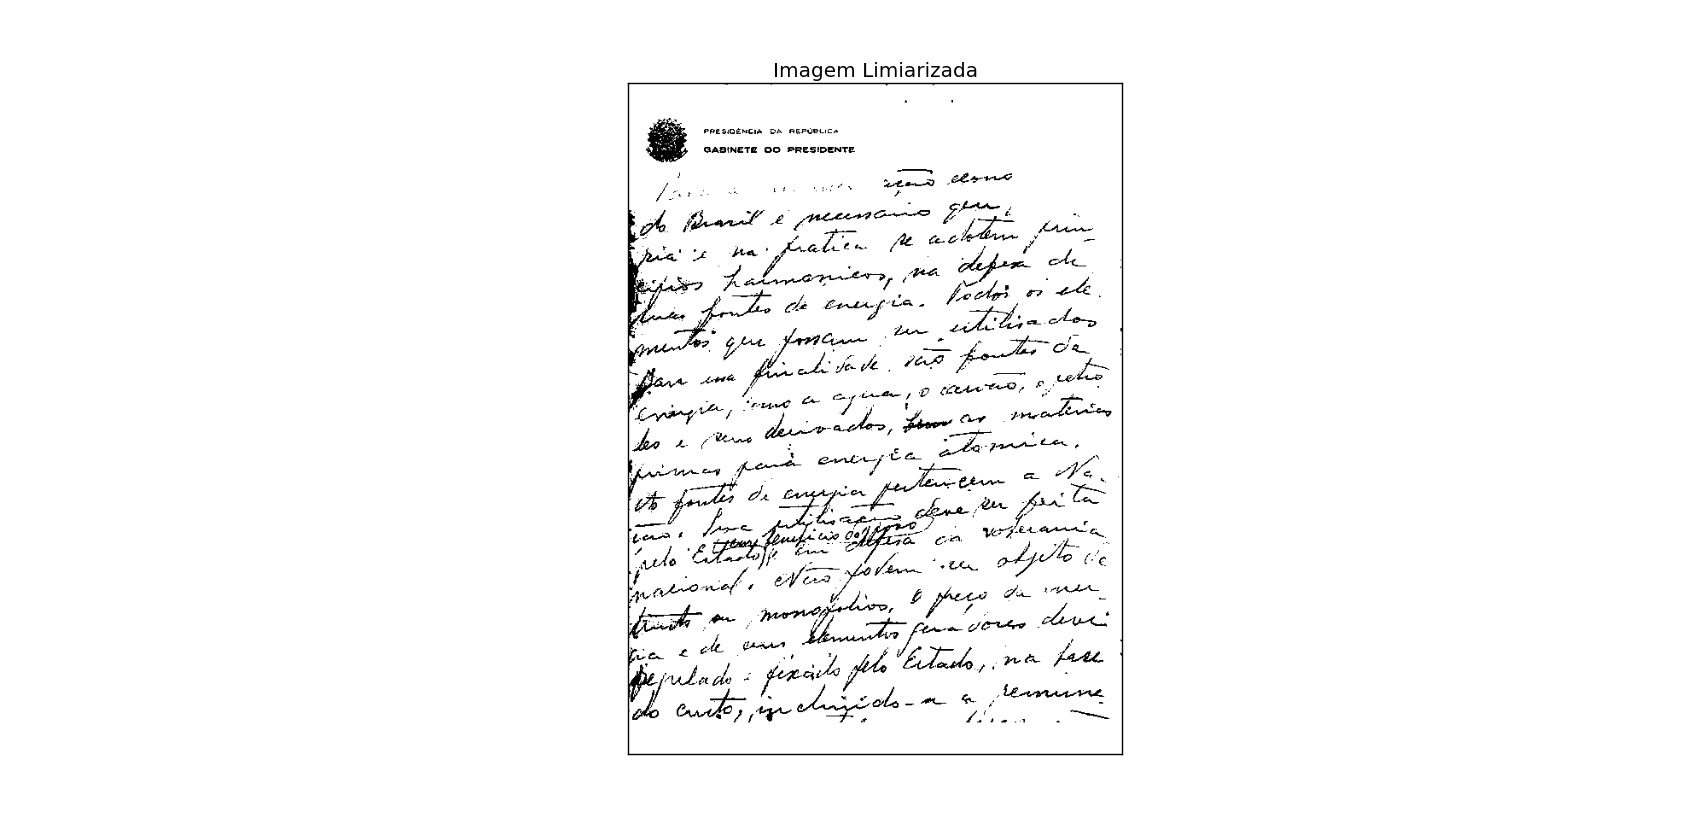 Imagem Limiarizada
PRESIDÊNCIA DA REPÚBLICA
GABINETE DO PRESIDENTE
ação econo
do Brasil é necessario que,
ria e na pratica se adotem prin
cipios harmonicos, na defesa de
suas fontes de energia. Todos os ele
mentos que possam ser utilisados
para essa finalidade são fontes da
energia, como a agua, o carvão, o petro
leo e seus derivados, as materias
primas para energia atomica.
As fontes de energia pertencem a Na-
ção. Essa utilisação deve ser feita
em beneficio do povo
pelo Estado, em defesa da soberania
nacional. Não podem ser objeto de
trusts ou monopolios, o preço da ener-
gia e de seus elementos geradores deve
regulado e fixado pelo Estado, na base
do custo, incluindo-se a remune